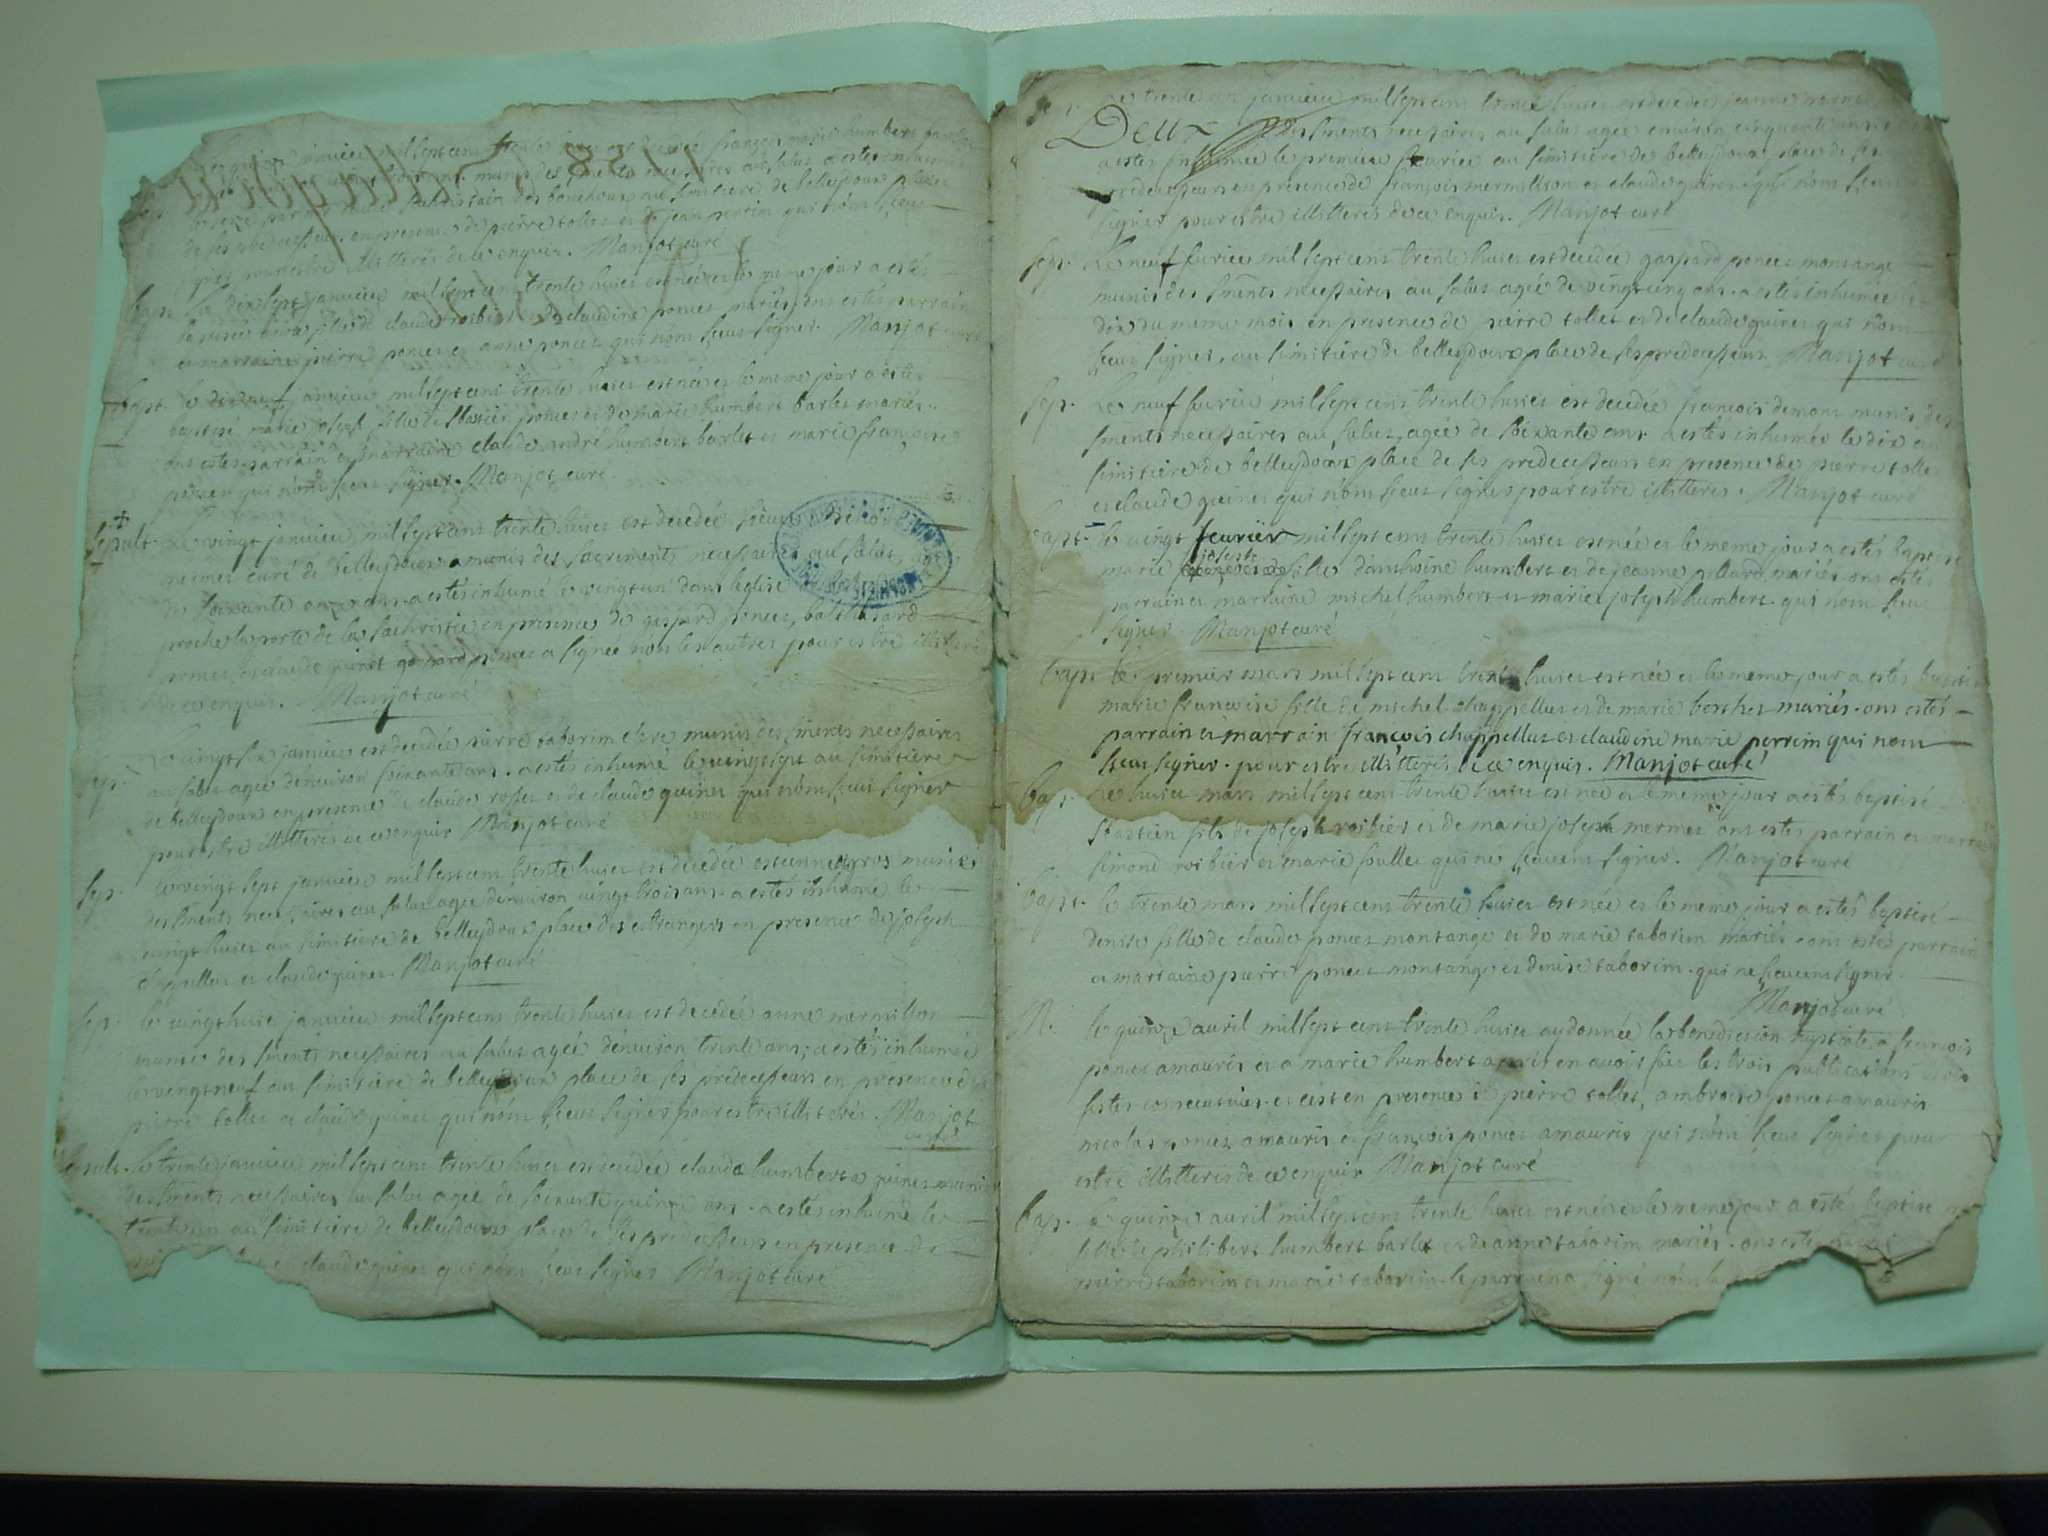 janvier mil sept cens trente
munis des necessaires au salus a estés inhumé
le seze par au simitiere de belleydoux place
de ses predecesseurs en presence de pierre tollet et de jean qui nom sceus
signer pour estre illitteres de ce enquis. Manjot curé
bapt. Le dix sept janvier mil sept cens trente huict est née et le meme jour a estés
fils de claude roibier et de claudine poncet mariés ons estés parrain
et marraine pierre poncet et anne poncet qui nom sceus signer. Manjot curé
bapt. Le dixneuf janvier mil sept cens trente huict est née et le meme jour a estés
baptisé marie joseph fille de poncet et de marie humbert barlet mariés.
ons estés parrain et marraine claude andré humbert barlet et marie françoise
poncet qui nom sceus signer. Manjot curé
Sepult. Le vingt janvier mil sept cens trente huict est decedée
mermet curé de belleydoux munis des sacrements necessaires au salus, agé
de soixante ans a estés inhumé le vingtun dans leglise
proche la porte de la sachristie en presence de gaspard poncet, balthasard
et claude guinet gaspard poncet a signée non les autres pour estre illitteres
de ce enquis. Manjot curé
sep. Le vingt six janvier est decedée pierre taborim munis des sments necessaires
au salus agée denviron soixante ans. a estés inhumé le vingtsept au simitiere
de belleydoux en presence de claude rosset et de claude guinet qui nom sceus signer
pour estre illitteres de ce enquis Manjot curé
sep. Le vingt sept janvier mil sept cens trente huict est decedée estienne gros munis
des sments necessaires au salus agée denviron vingt trois ans. a estés inhumé le
vingt huict au simitiere de belleydoux place des estrangers en presence de joseph
chapellus et claude guinet. Manjot curé
sep. le vingt huict janvier mil sept cens trente huict est decedée anne mermillon
munie des sments necessaires au salus agée denviron trente ans, a estés inhumé
le vingtneuf au simitiere de belleydoux place de ses predecesseurs en presence de
pierre tollet et claude guinet qui nom sceus signer pour estre illitteres. Manjot
curé
sepult. le trente janvier mil sept cens trente huict est decedée claude humbert a guinet munis
des sments necessaires au salus agée de soixante quinze ans. a estés inhumé le
trente un au simitiere de belleydoux place de ses predecesseurs en presence de
et claude guinet qui nom sceus signer Manjot curé
Le trente un janvier mil sept cens trente huict est decedée jeanne
Deux des sments necessaires au salus agée environ cinquante
a estés inhumée le premier fevrier au simitiere de belleydoux place de ses
predecesseurs en presence de françois mermillion et claude guinet qui nom sceus
signer pour estre illitteres de ce enquis. Manjot curé
sep. Le neuf fevrier mil sept cens trente huict est decedée gaspard poncet montange
munis des sments necessaires au salus agée de vingt cinq ans. a estés inhumée le
dix du meme mois en presence de pierre tollet et de claude guinet qui nom
sceus signer, au simitiere de belleydoux place de ses predecesseurs Manjot curé
sep. Le neuf fevrier mil sept cens trente huict est decedée françois demons munis des
sments necessaires au salus, agée de soixante ans a estés inhumée le dix au
simitiere de belleydoux place de ses predecesseurs en presence de pierre tollet
et claude guinet qui nom sceus signer pour estre illitteres. Manjot curé
bapt. le vingt feurïer mil sept cens trente huict est née et le meme jour a estés baptisé
marie joseph fille danthoine humbert et de jeanne pillard, mariés ons estés
parrain et marraine michel humbert et marie joseph humbert. qui nom sceus
signer Manjot curé
bapt le premier mars mil sept cens trente huict est née et le meme jour a estés baptisé
marie francoise fille de michel chappellus et de marie berthet mariés. ons estés
parrain et marrain françois chappellus et claudine marie perrin qui nom
sceus signer. pour estre illitteres de ce enquis. Manjot curé
bapt. Le huict mars mil sept cens trente huict est née et le meme jour a estés baptisé
sbastien fils de joseph roibier et de marie joseph mermet ons estés parrain et marraine
simond roibïer et marie soullet qui ne sceuvent signer. Manjot curé
bapt. le trente mars mil sept cens trente huict est née et le meme jour a estés baptisé
denise fille de claude poncet montange et de marie taborim mariés. ons estés parrain
et marraine pierre poncet montange et denise taborim. qui ne sceuvent signer.
Manjot curé
M. le quinze avril mil sept cens trente huict ay donnée la benediction nuptiale a francois
poncet amauris et a marie humbert apres en avoir fait les trois publications trois
festes consecutives et cest en presence de pierre tollet, ambroise poncet amauris
nicolas poncet amauris et françois poncet amauris qui nom sceus signer pour
estre illitteres de ce enquis Manjot curé
bap. Le quinze avril mil sept cens trente huict est née et le meme jour a estés baptisé
fille de philibert humbert barlet et de anne taborim mariés. ons estés
pierre taborim et marie taborim. le parrain a signé non la